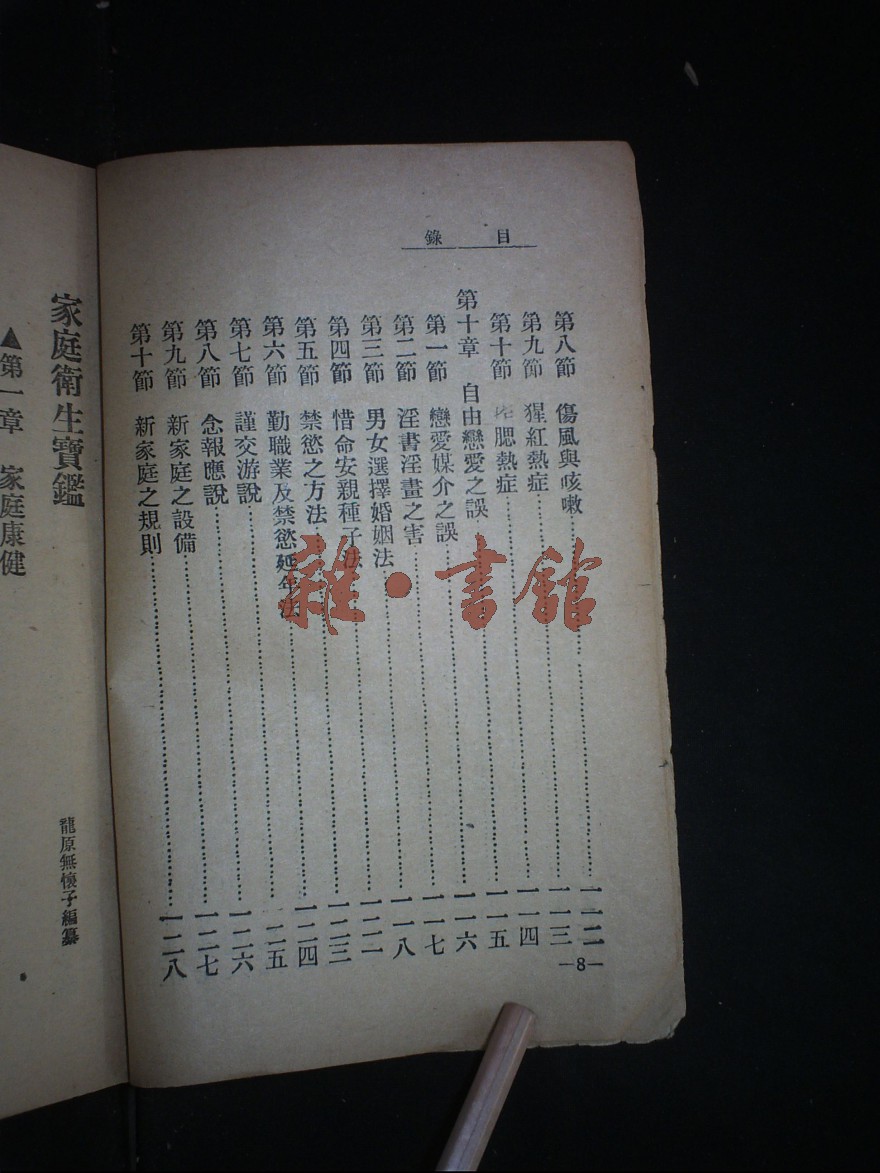 目錄
第八節 傷風與咳嗽……一一二
第九節 猩紅熱症……一一三
第十節 肥熱症……一一四
第十章 自由戀愛之誤……一一五
第一節 戀愛媒介之誤……一一六
第二節 淫書淫畫之害……一一七
第三節 男女選擇婚姻法……一一八
第四節 惜命安親種子法……一二一
第五節 禁慾之方法……一二三
第六節 勤職業及禁慾延年法……一二四
第七節 謹交游說……一二五
第八節 念報應說……一二六
第九節 新家庭之設備……一二七
第十節 新家庭之規則……一二八
—8—
家庭衛生寶鑑
龍原無懷子編纂
▲第一章 家庭康健
雜·書館